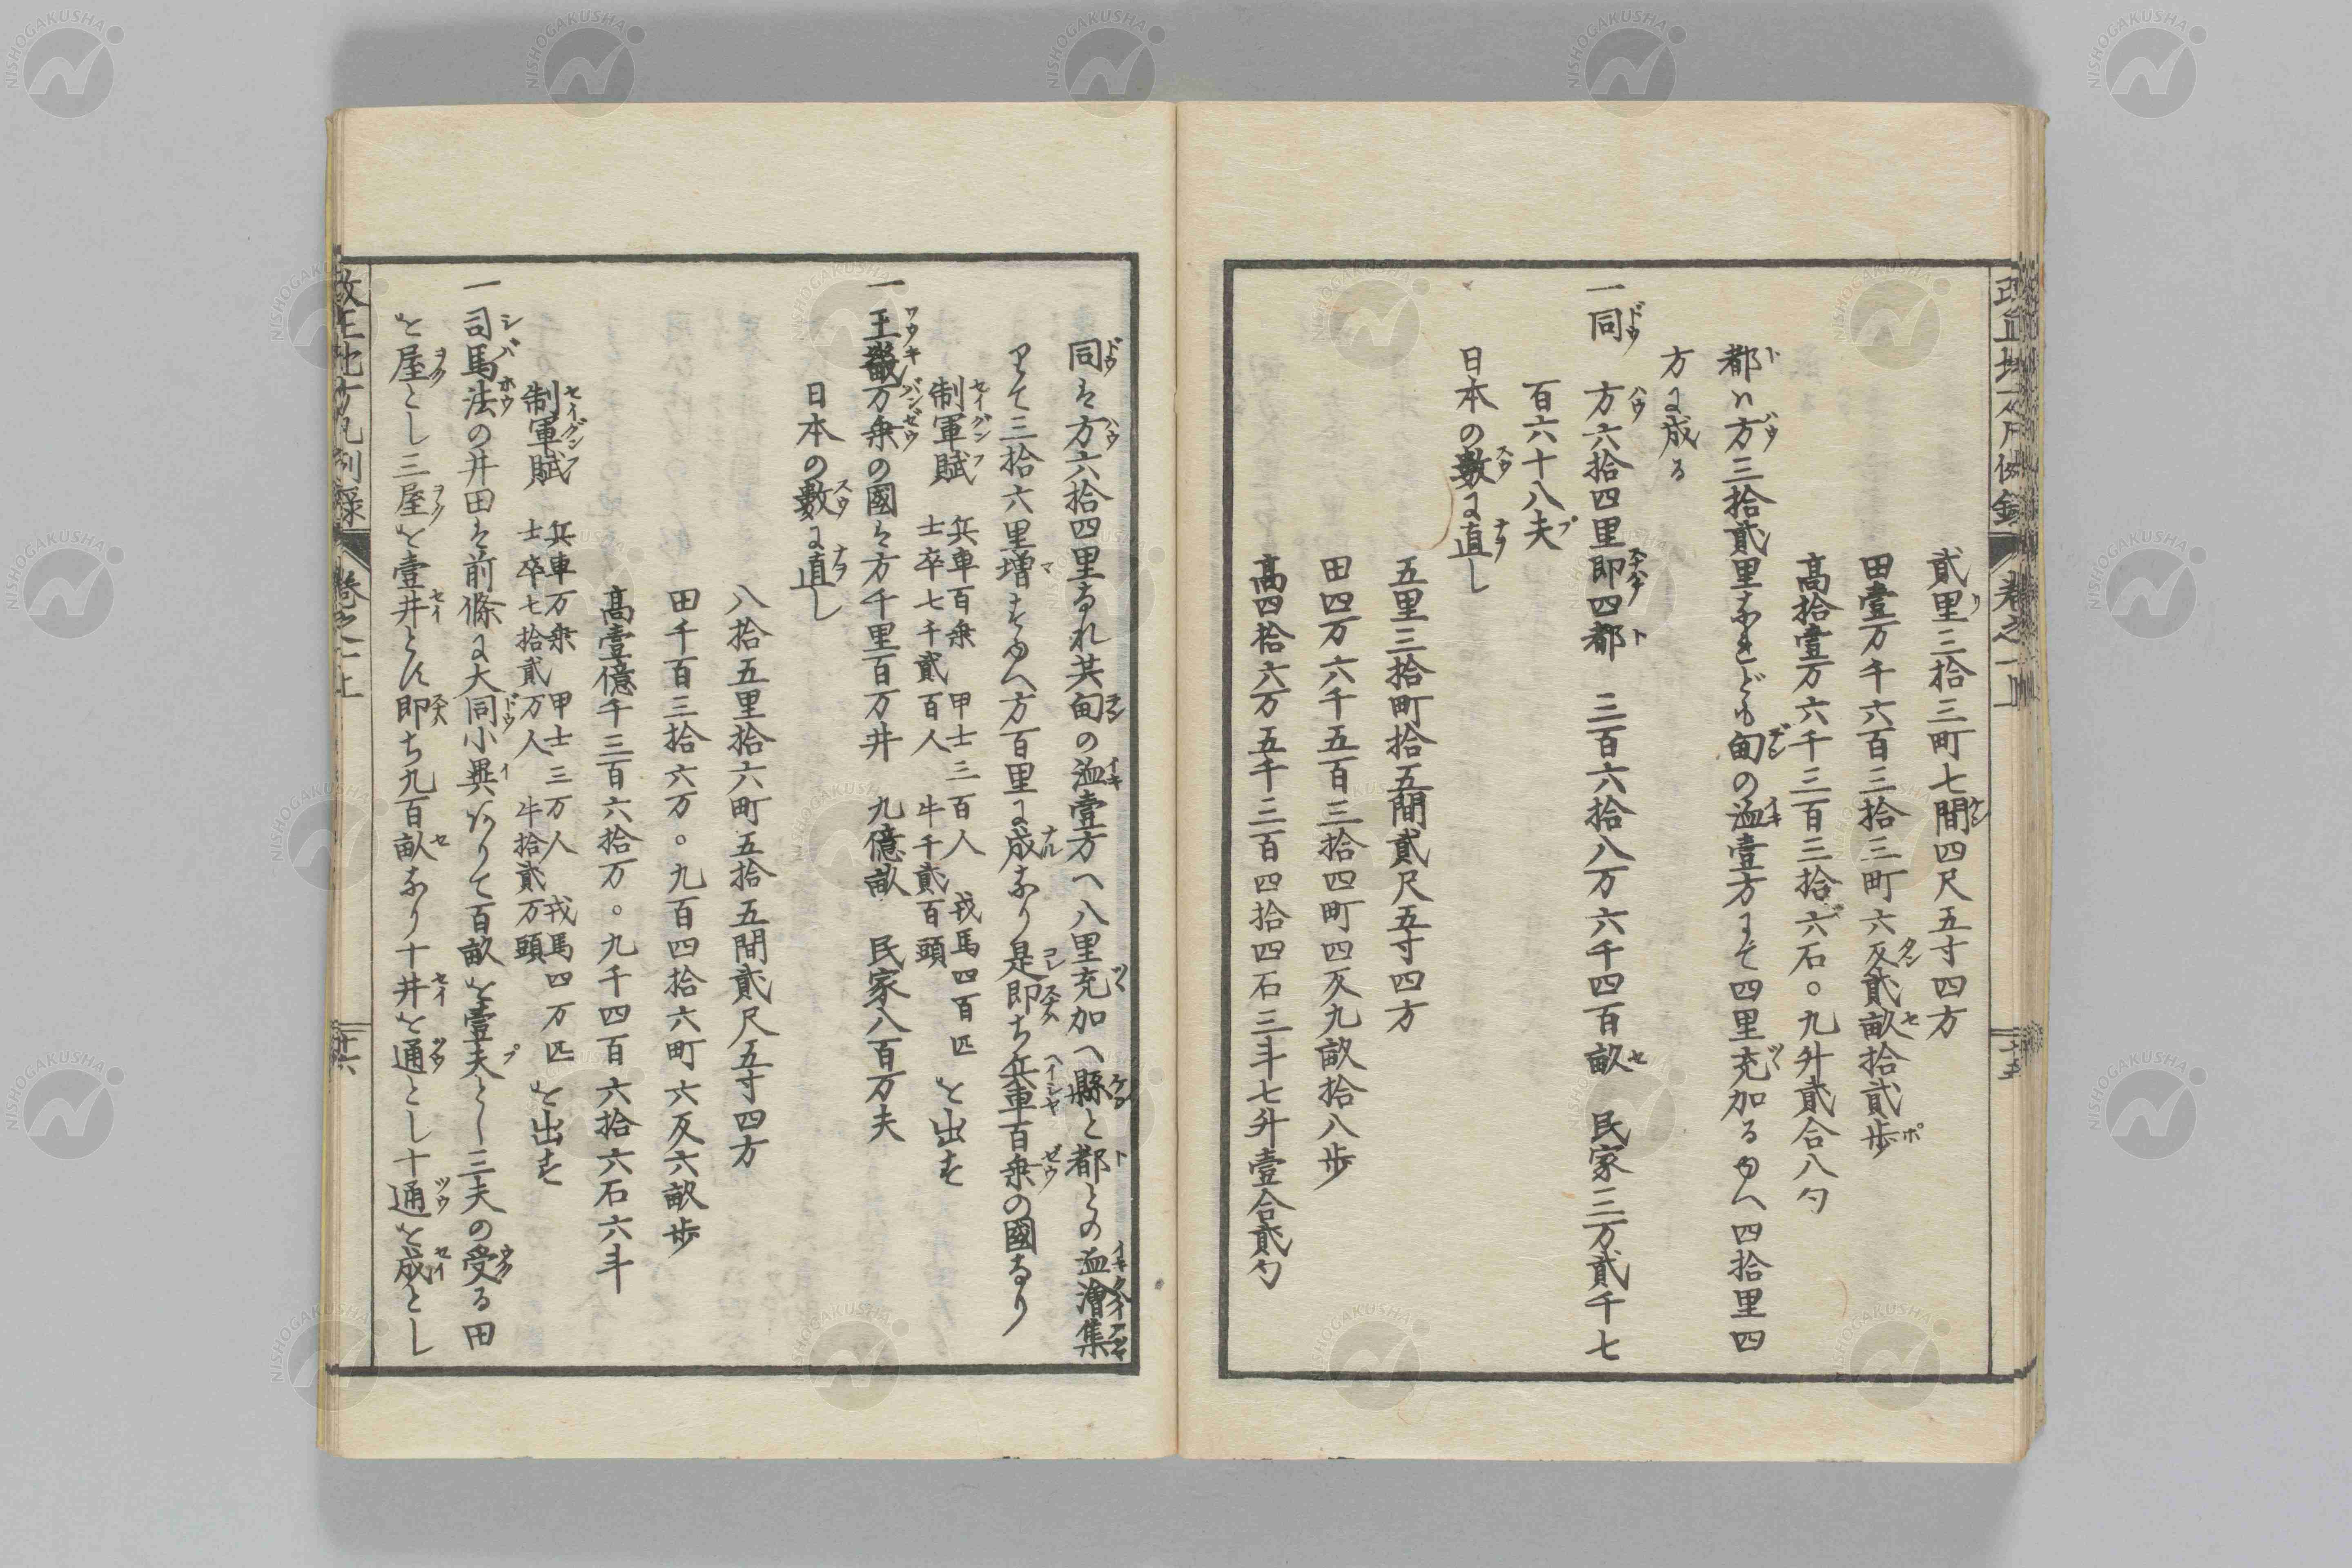 貳里三拾三町七間四尺五寸四方
田壹万千六百三拾三町六反貳畝拾貳歩
高拾壹万六千三百三拾六石〇九升貳合八勺
都ハ方三拾貳里なれども甸の洫壹方にて四里充加るゆへ四拾里四
方に成る
一同 方六拾四里即四都 三百六拾八万六千四百畝 民家三万貳千七
百六十八夫
日本の數に直し
五里三拾町拾五間貳尺五寸四方
田四万六千五百三拾四町四反九畝拾八歩
高四拾六万五千三百四拾四石三斗七升壹合貳勺
同は方六拾四里なれ共甸の洫壹方へ八里充加へ縣と都との洫澮集
りて三拾六里増すゆへ方百里に成なり是即ち兵車百乗の國なり
制軍賦 兵車百乗 甲士三百人 戎馬四百匹 を出す
士卒七千貳百人 牛千貳百頭
一王畿万乗の國は方千里百万井 九億畝 民家八百万夫
日本の數に直し
八拾五里拾六町五拾五間貳尺五寸四方
田千百三拾六万〇九百四拾六町六反六畝歩
高壹億千三百六拾万〇九千四百六拾六石六斗
制軍賦 兵車万乗 甲士三万人 戎馬四万匹 を出す
士卒七拾貳万人 牛拾貳万頭
一司馬法の井田は前條に大同小異ありて百畝を壹夫とし三夫の受る田
を屋とし三屋を壹井とす即ち九百畝なり十井を通とし十通を成とし
改正地方凡例録 巻之一上 廿六
NISHOGAKUSHA